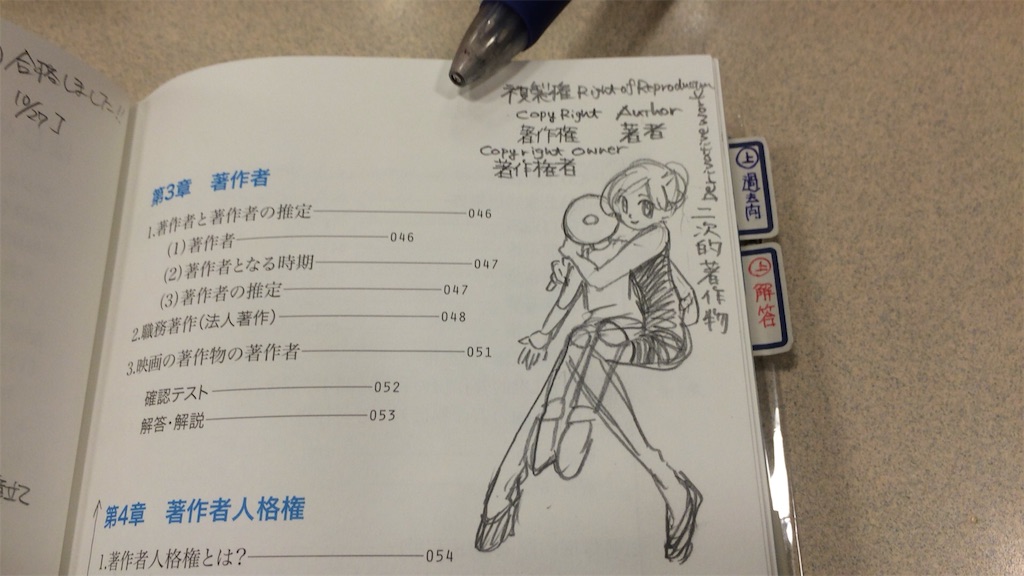 合格しました!!
10/27
複製権 Right of Reproduction
Copy Right Author
著作権 著者
Copyright owner
著作権者
二次的著作物
第3章 著作者
1.著作者と著作者の推定 046
(1)著作者 046
(2)著作者となる時期 047
(3)著作者の推定 047
2.職務著作(法人著作) 048
3.映画の著作物の著作者 051
確認テスト 052
解答・解説 053
第4章 著作者人格権
1.著作者人格権とは? 054
上 過去問
上 解答